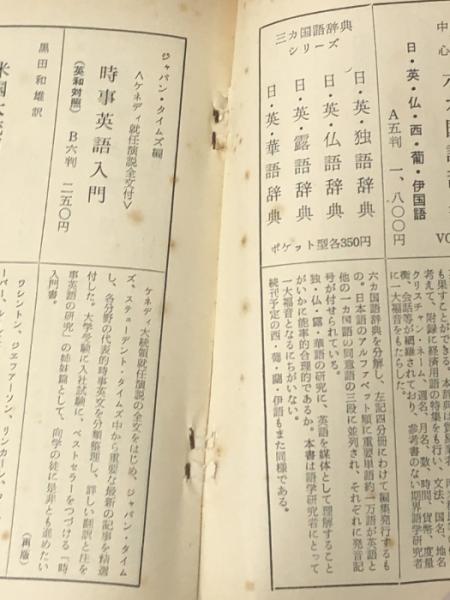 中
心
六カ国語辞
日・英・仏・西・葡・伊国語
A五判　一、八〇〇円
三カ国語辞典
シリーズ
日・英・独語辞典
日・英・仏語辞典
日・英・露語辞典
日・英・華語辞典
ポケット型各350円
も果すことができる。本辞典は
考えて、附録に経済用語の特集をも行い、文法、国名、地名
クリスチャンネーム、週名、月名、数、時間、貨幣、度量
衡、会話等が網羅されており、参考書のない期界語学研究
に一大福音をもたらした。
六カ国語辞典を分解し、左記四分冊にわけて編集発行するも
の。日本語のアルファベット順に重要単語約一万語が英語と
他の一カ国語の同意語の三段に並列され、それぞれに発音記
号が付せられている。
独・仏・露・華語の研究に、英語を媒体として理解すること
がいかに能率的合理的であるか。本書は語学研究者にとって
一大福音となるにちがいない。
続刊予定の西・葡・蘭・伊語もまた同様である。
ジャパン・タイムズ編
〈ケネディ就任演説全文付〉
時事英語入門
(英和対照)　B六判　二五〇円
ケネディ大統領就任演説の全文をはじめ、ジャパン・タイム
ズ、スチューデント・タイムズ中から重要な最新の記事を精選
し、各分野の代表的時事英文を分類整理し、詳しい翻訳と注を
付した。大学受験に入社試験に、ベストセラーをつづける『時
事英語の研究』の姉妹篇として、向学の徒に是非とも進めたい
入門書。
(再版)
黒田和雄訳
米国大統
ワシントン、ジェファーソン、リンカーン、